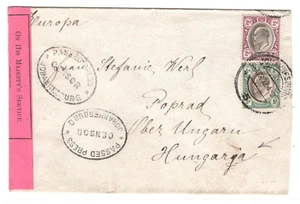 Europa
ON HIS MAJESTY'S SERVICE.
PASSED PRESS
CENSOR
JOHANNESBURG
Stefanie Werl
Poprad
Ober Ungarn
Hungaria
PASSED PRESS
CENSOR
JOHANNESBURG